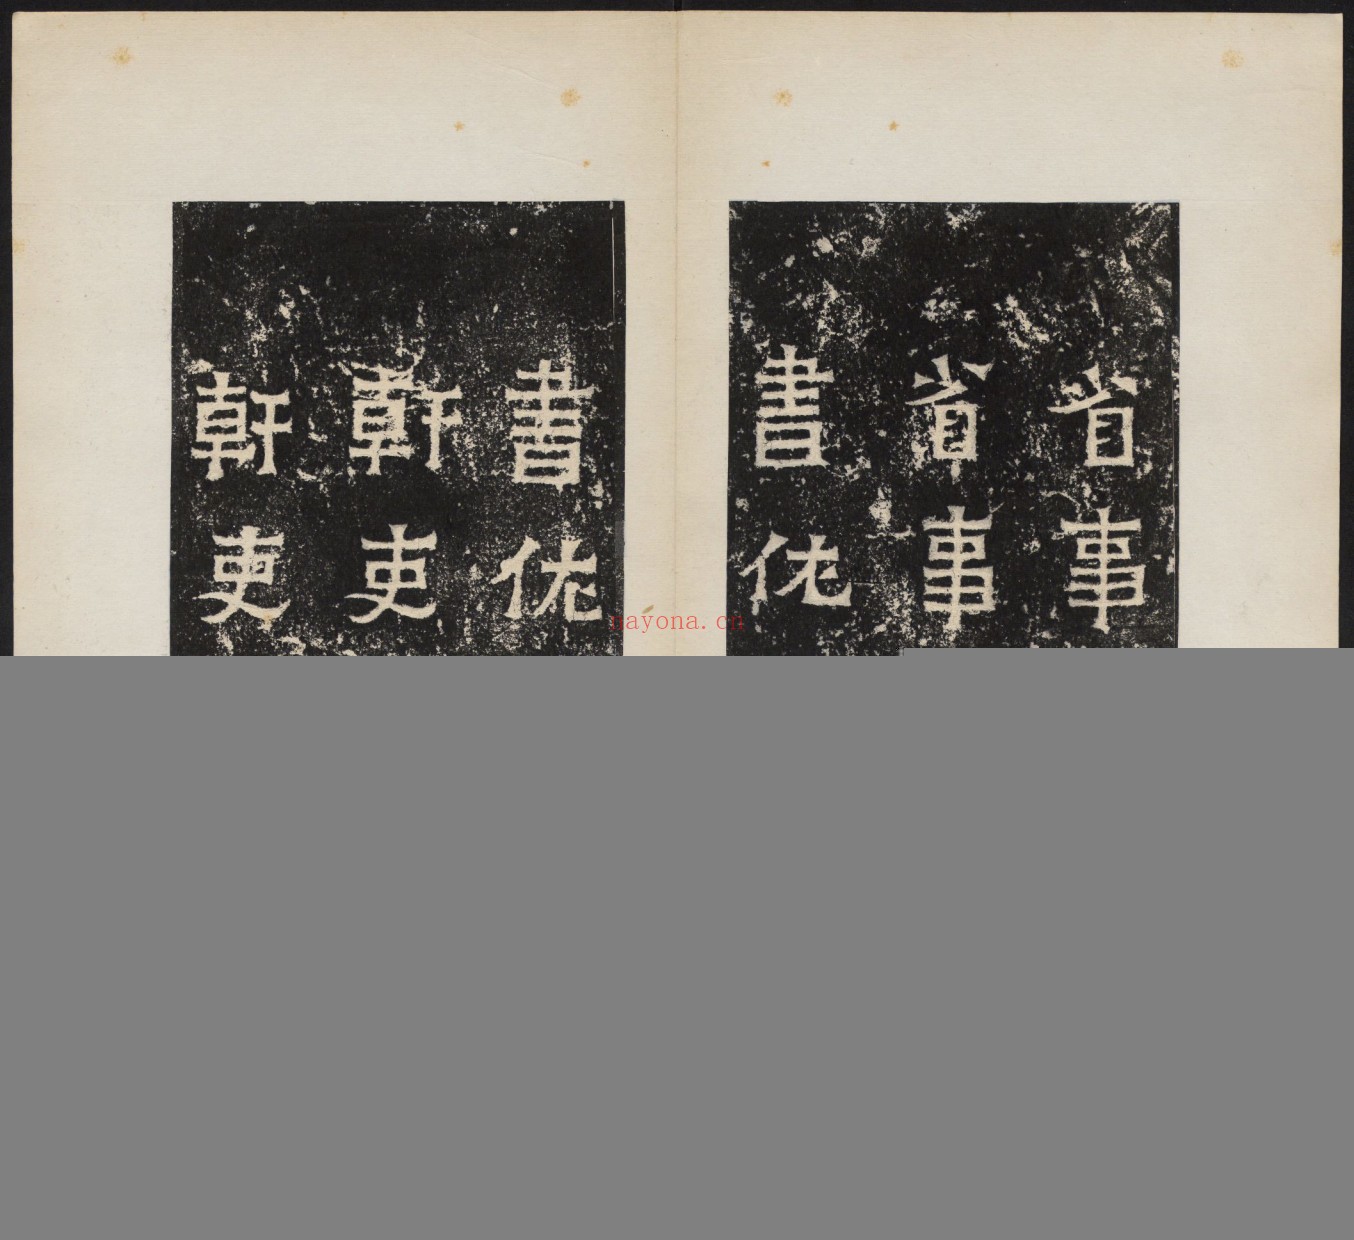 省事
省事
書佐
書佐
幹吏
幹吏
nayona.cn